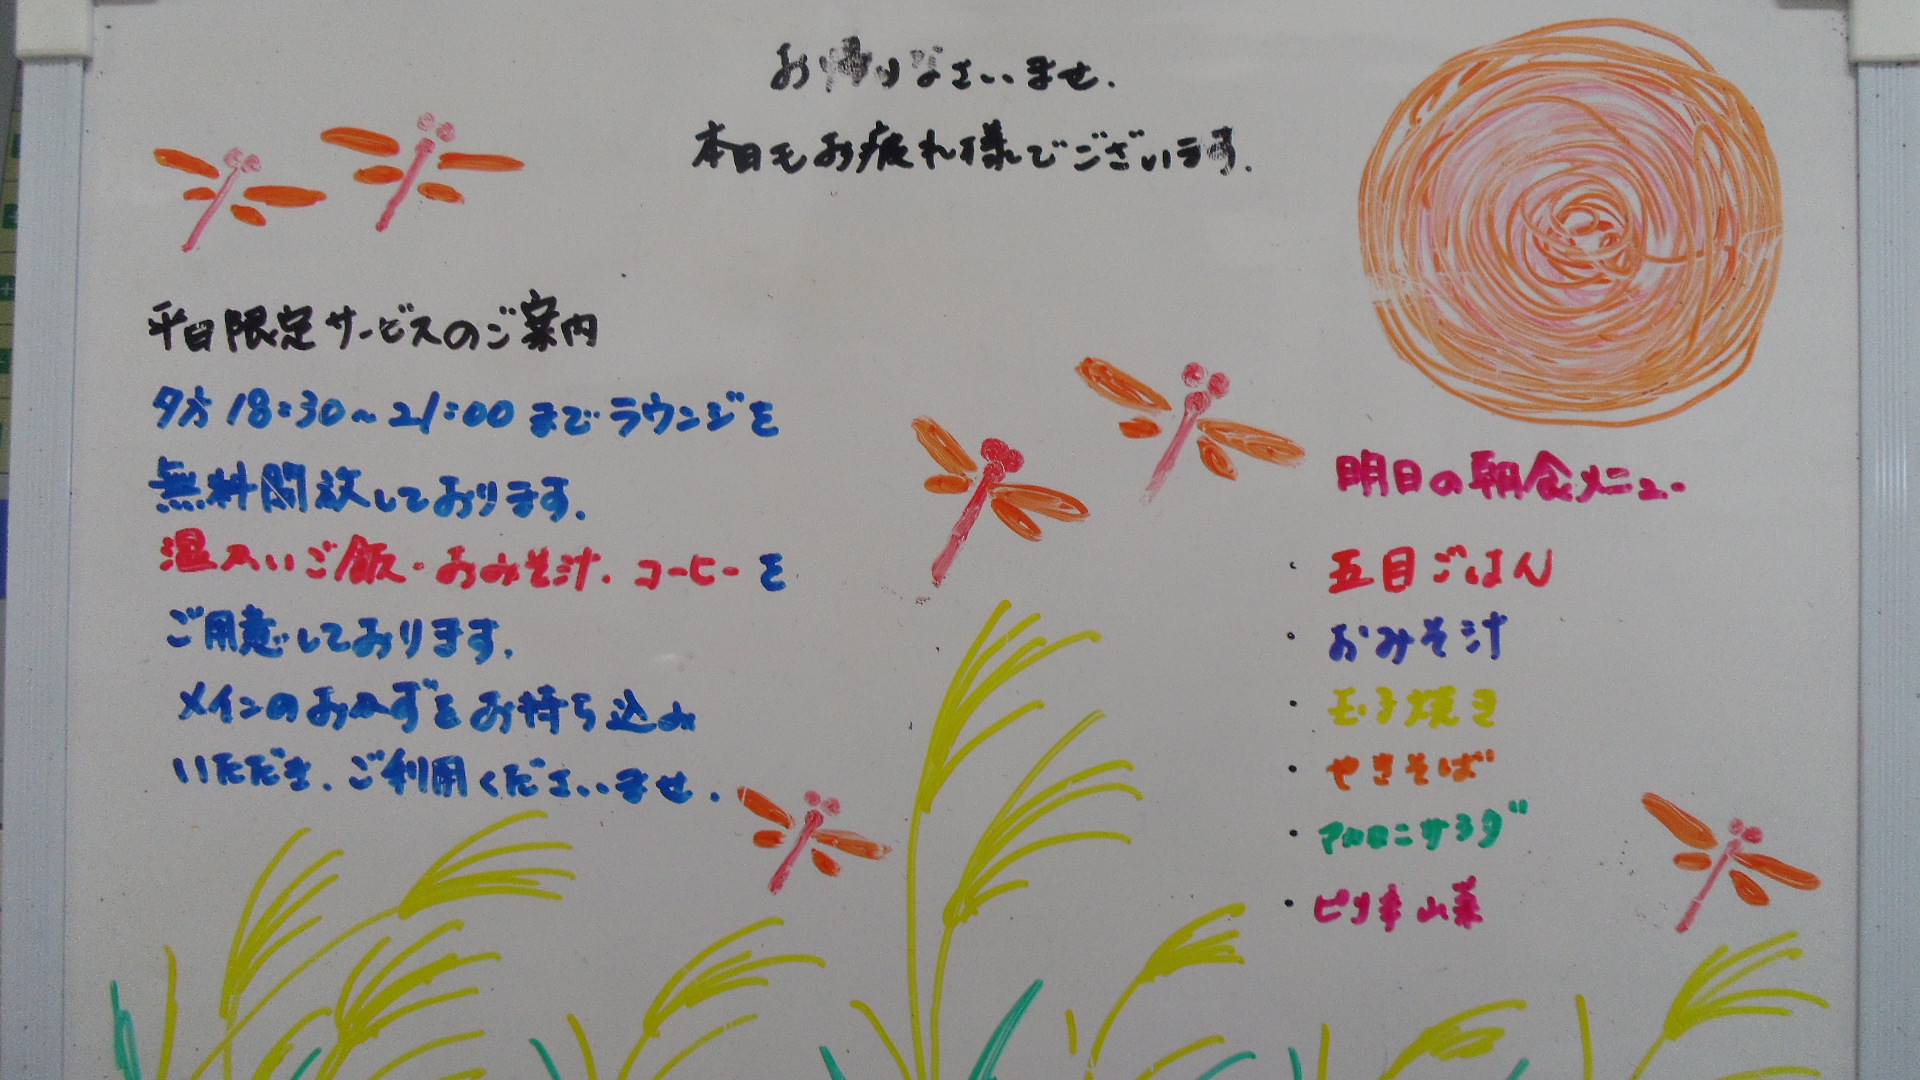 お帰りなさいませ.
本日もお疲れ様でございます.
平日限定サービスのご案内
夕方18:30〜21:00までラウンジを
無料開放しております.
温かいご飯・おみそ汁.コーヒーを
ご用意しております.
メインのおかずをお持ち込み
いただき.ご利用くださいませ.
明日の朝食メニュー
・五目ごはん
・おみそ汁
・玉子焼き
・やきそば
・マカロニサラダ
・ピリ辛山菜